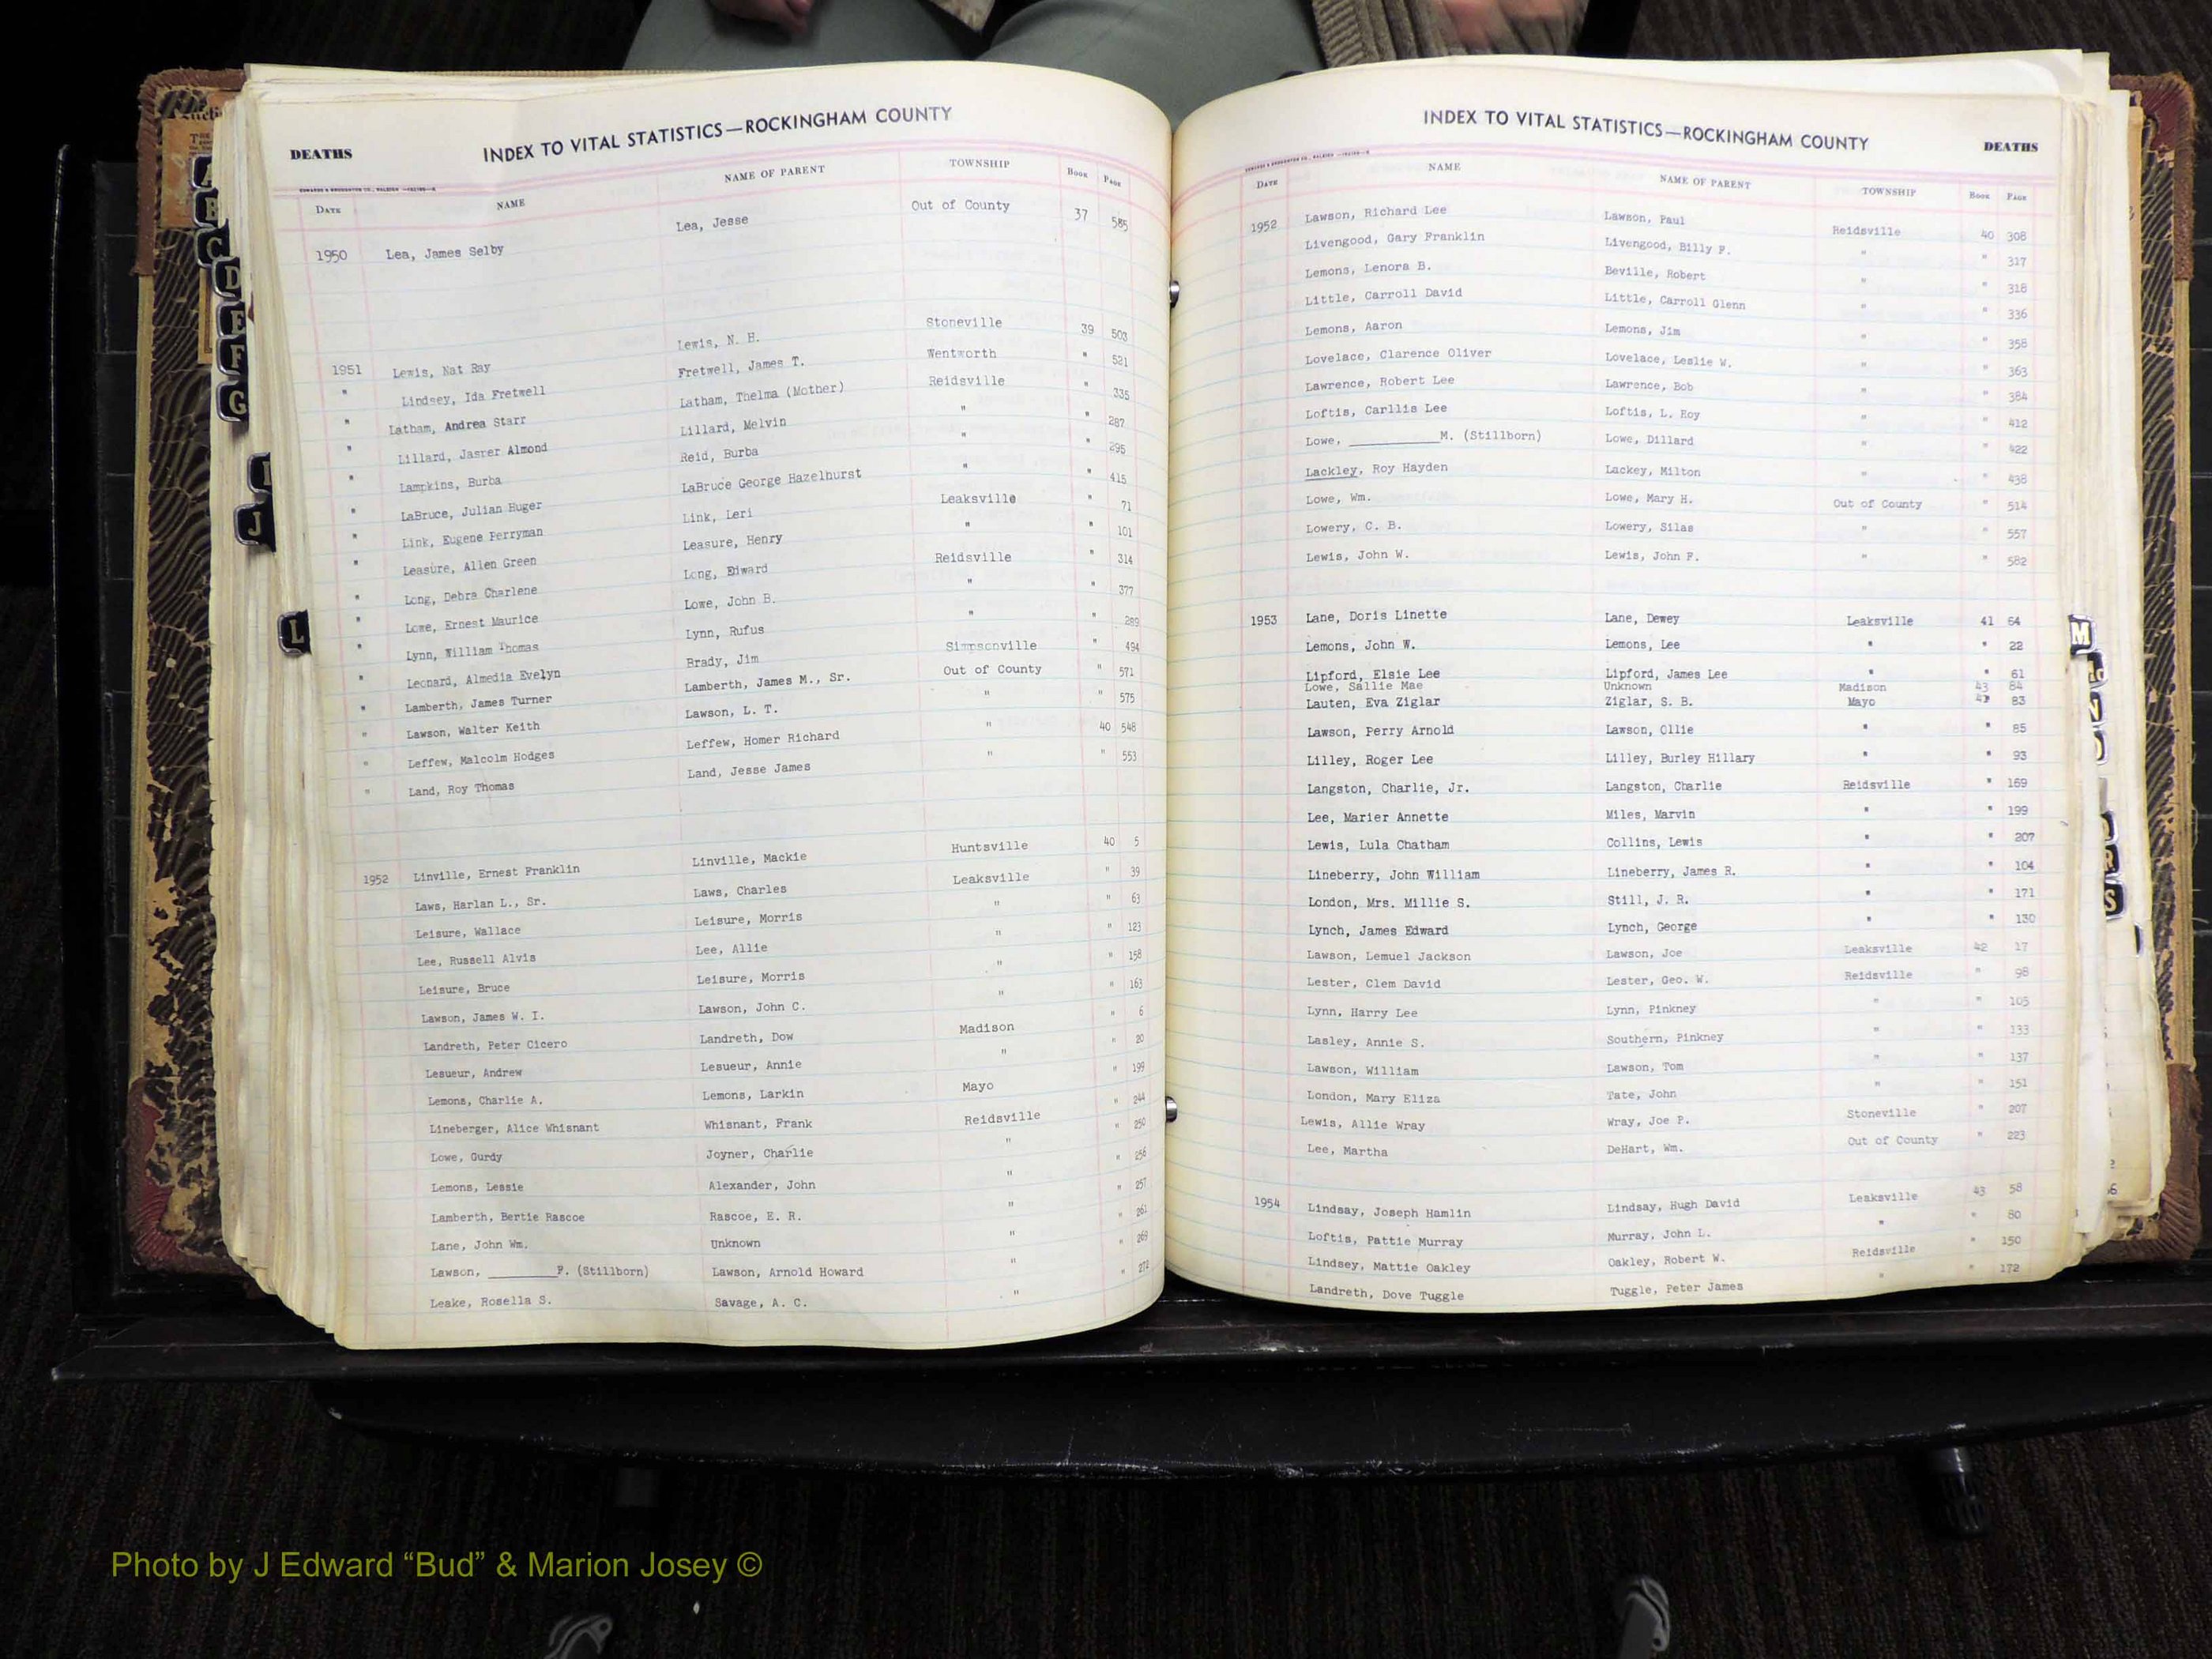 DEATHS INDEX TO VITAL STATISTICS—ROCKINGHAM COUNTY
EDWARDS & BROUGHTON CO., RALEIGH
DATE NAME NAME OF PARENT TOWNSHIP BOOK PAGE
1950 Lea, James Selby Lea, Jesse Out of County 37 585
1951 Lewis, Nat Ray Lewis, N. H. Stoneville 39 503
" Lindsey, Ida Fretwell Fretwell, James T. Wentworth " 521
" Latham, Andrea Starr Latham, Thelma (Mother) Reidsville " 335
" Lillard, Jasper Almond Lillard, Melvin " " 287
" Lampkins, Burba Reid, Burba " " 295
" LaBruce, Julian Huger LaBruce George Hazelhurst " " 415
" Link, Eugene Perryman Link, Leri Leaksville " 71
" Leasure, Allen Green Leasure, Henry " " 101
" Long, Debra Charlene Long, Edward Reidsville " 314
" Lowe, Ernest Maurice Lowe, John B. " " 377
" Lynn, William Thomas Lynn, Rufus " " 289
" Leonard, Almedia Evelyn Brady, Jim Simpsonville " 494
" Lamberth, James Turner Lamberth, James M., Sr. Out of County " 571
" Lawson, Walter Keith Lawson, L. T. " " 575
" Leffew, Malcolm Hodges Leffew, Homer Richard " 40 548
" Land, Roy Thomas Land, Jesse James " " 553
1952 Linville, Ernest Franklin Linville, Mackie Huntsville 40 5
Laws, Harlan L., Sr. Laws, Charles Leaksville " 39
Leisure, Wallace Leisure, Morris " " 63
Lee, Russell Alvis Lee, Allie " " 123
Leisure, Bruce Leisure, Morris " " 158
Lawson, James W. I. Lawson, John C. " " 163
Landreth, Peter Cicero Landreth, Dow Madison " 6
Lesueur, Andrew Lesueur, Annie " " 20
Lemons, Charlie A. Lemons, Larkin Mayo " 199
Lineberger, Alice Whisnant Whisnant, Frank Reidsville " 244
Lowe, Gurdy Joyner, Charlie " " 250
Lemons, Lessie Alexander, John " " 256
Lamberth, Bertie Rascoe Rascoe, E. R. " " 257
Lane, John Wm. Unknown " " 261
Lawson, ________F. (Stillborn) Lawson, Arnold Howard " " 269
Leake, Rosella S. Savage, A. C. " " 272
INDEX TO VITAL STATISTICS—ROCKINGHAM COUNTY DEATHS
EDWARDS & BROUGHTON CO., RALEIGH
DATE NAME NAME OF PARENT TOWNSHIP BOOK PAGE
1952 Lawson, Richard Lee Lawson, Paul Reidsville 40 308
Livengood, Gary Franklin Livengood, Billy F. " " 317
Lemons, Lenora B. Beville, Robert " " 318
Little, Carroll David Little, Carroll Glenn " " 336
Lemons, Aaron Lemons, Jim " " 358
Lovelace, Clarence Oliver Lovelace, Leslie W. " " 363
Lawrence, Robert Lee Lawrence, Bob " " 384
Loftis, Carllis Lee Loftis, L. Roy " " 412
Lowe, __________M. (Stillborn) Lowe, Dillard " " 422
Lackley, Roy Hayden Lackey, Milton " " 438
Lowe, Wm. Lowe, Mary H. Out of County " 514
Lowery, C. B. Lowery, Silas " " 557
Lewis, John W. Lewis, John F. " " 582
1953 Lane, Doris Linette Lane, Dewey Leaksville 41 64
Lemons, John W. Lemons, Lee " " 22
Lipford, Elsie Lee Lipford, James Lee " 61
Lowe, Sallie Mae Unknown Madison 43 84
Lauten, Eva Ziglar Ziglar, S. B. Mayo 41 83
Lawson, Perry Arnold Lawson, Ollie " " 85
Lilley, Roger Lee Lilley, Burley Hillary " " 93
Langston, Charlie, Jr. Langston, Charlie Reidsville " 169
Lee, Marier Annette Miles, Marvin " " 199
Lewis, Lula Chatham Collins, Lewis " " 207
Lineberry, John William Lineberry, James R. " " 104
London, Mrs. Millie S. Still, J. R. " " 171
Lynch, James Edward Lynch, George " " 130
Lawson, Lemuel Jackson Lawson, Joe Leaksville 42 17
Lester, Clem David Lester, Geo. W. Reidsville " 98
Lynn, Harry Lee Lynn, Pinkney " " 105
Lasley, Annie S. Southern, Pinkney " " 133
Lawson, William Lawson, Tom " " 137
London, Mary Eliza Tate, John " " 151
Lewis, Allie Wray Wray, Joe P. Stoneville " 207
Lee, Martha DeHart, Wm. Out of County " 223
1954 Lindsay, Joseph Hamlin Lindsay, Hugh David Leaksville 43 58
Loftis, Pattie Murray Murray, John L. " " 80
Lindsey, Mattie Oakley Oakley, Robert W. Reidsville " 150
Landreth, Dove Tuggle Tuggle, Peter James " " 172
A
B
C
D
E
F
G
J
L
M
N
R
S
Photo by J Edward “Bud” & Marion Josey ©